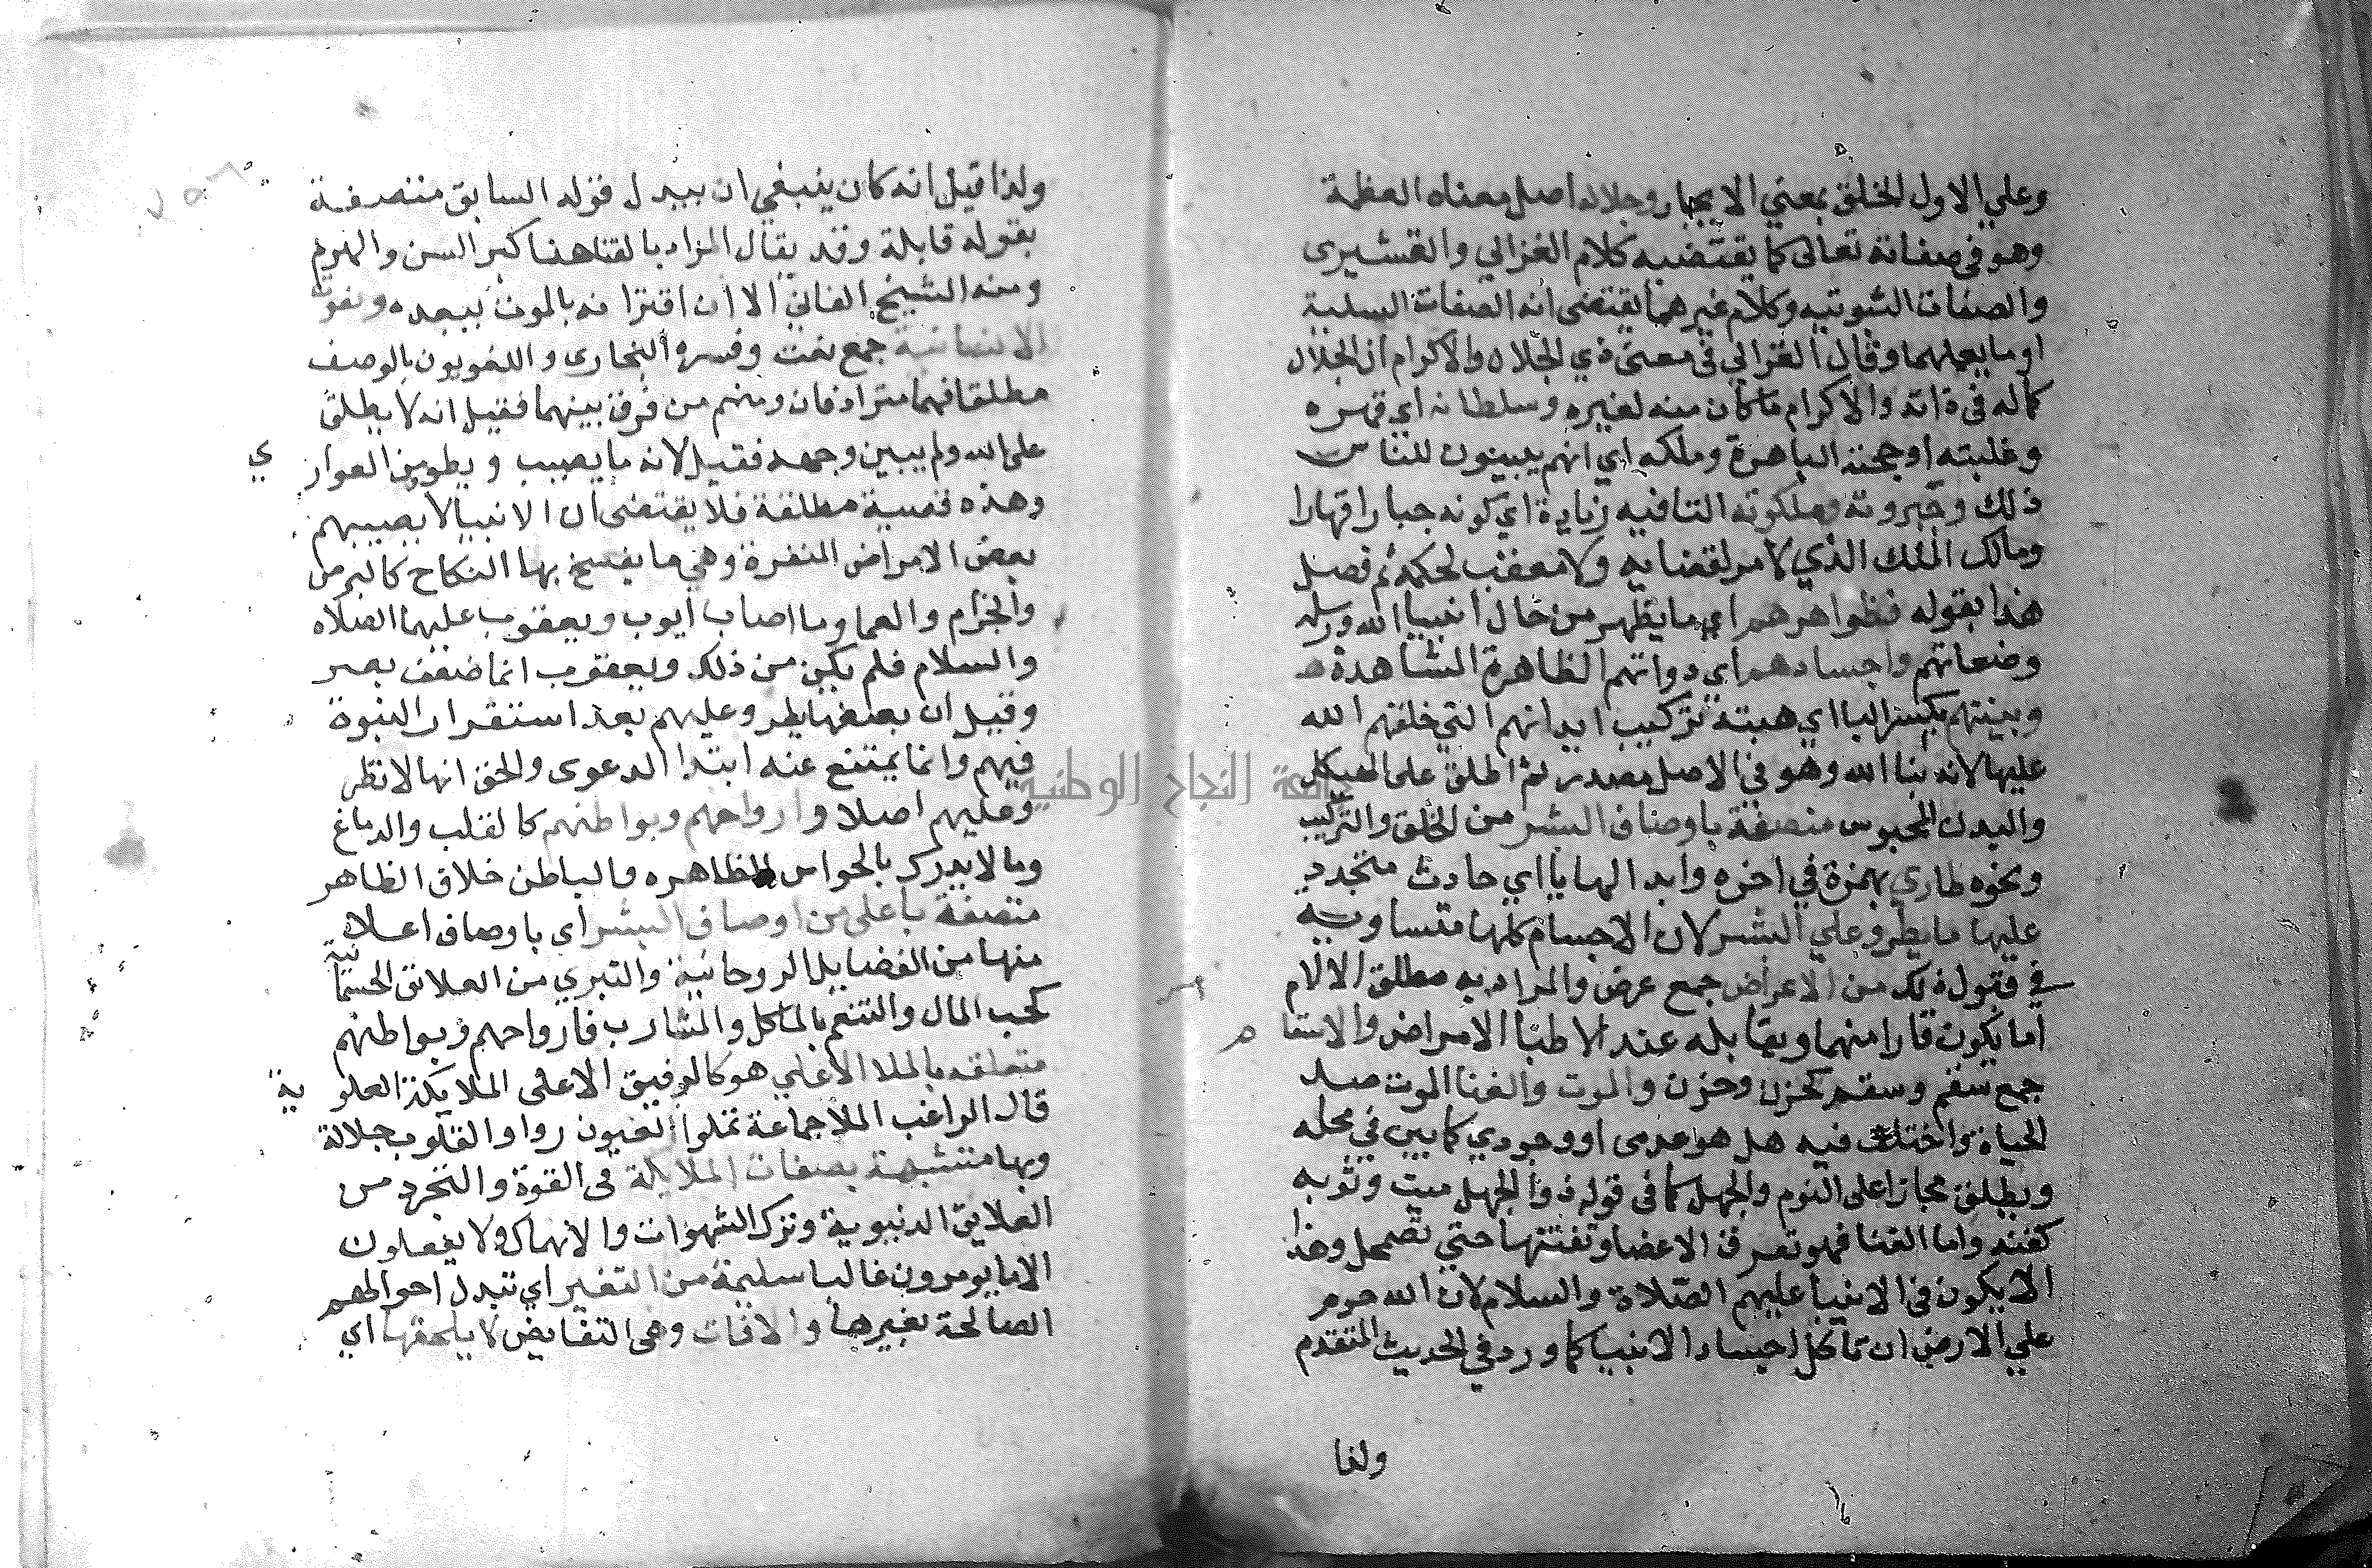 وعلي الاول الخلق بمعني الايجاد وجلاله اصل معناه العظمة
وهو في صفاته تعالى كما يقتضيه كلام الغزالي والقشيرى
والصفات الثبوتيه وكلام غيرهما يقتضى انه الصفات السلبية
او ما يعلهما وقال الغزالي في معنى ذي الجلال والاكرام ان الجلال
كماله في ذاته والاكرام ما كان منه لغيره وسلطانه اي قهره
وغلبته او حجته الباهرة وملكه اي انهم يبينون للناس
ذلك وجبروته وملكوته التا فيه زيادة اي كونه جبارا قهارا
ومالك الملك الذي لا مر لقضايه ولا معقب لحكمه ثم فصل
هذا بقوله فظواهرهم اي ما يظهر من حال انبيا الله ورسله
وصفاتهم واجسادهم اي ذواتهم الظاهرة المشاهدة
وبنيتهم بكسر البا اي هيئة تركيب ابدانهم التي خلقهم الله
عليها لانه بنا الله وهو في الاصل مصدر ثم اطلق على الهيكل
والبدن المحسوس متصفة باوصاف البشر من الخلق والتركيب
ونحوه طاري بهمزة في اخره وابدالها يا اي حادث متجدد
عليها ما يطرو علي البشر لان الاجسام كلها متساوية
في قبول ذلك من الاعراض جمع عرض والمراد به مطلق الالام
اما يكون قارا منهما ويقابله عند الاطبا الامراض والاسقام
جمع سقم وسقم كحزن وحزن والموت والفنا الموت ضد
الحياة واختلف فيه هل هو عدمى او وجودي كما بين في محله
ويطلق مجازا على النوم والجهل كما في قوله وذو الجهل ميت وثوبه
كفنه واما الفنا فهو تفرق الاعضا وتفتتها حتي تضمحل وهذا
لا يكون في الانبيا عليهم الصلاة والسلام لان الله حرم
علي الارض ان تاكل اجساد الانبيا كما ورد في الحديث المتقدم
ولذا
ولذا قيل انه كان ينبغي ان يبدل قوله السابق متصفة
بقوله قابلة وقد يقال المراد بالفنا هنا كبر السن والهرم
ومنه الشيخ الفاني الا ان اقترانه بالموت يبعده ونعوت
الانسانية جمع نعت وفسره البخارى واللغويون بالوصف
مطلقا فهما مترادفان ومنهم من فرق بينهما فقيل انه لا يطلق
على الله ولم يبين وجهه فقيل لانه ما يصيب ويطرو من العواري
وهذه قضية مطلقة فلا يقتضى ان الانبيا لا يصيبهم
بعض الامراض المنفرة وهي ما يفسخ بها النكاح كالبرص
والجذام والعما وما اصاب ايوب ويعقوب عليهما الصلاه
والسلام فلم يكن من ذلك ويعقوب انما ضعف بصره
وقيل ان بعضها يطرو عليهم بعد استقرار النبوة
فيهم وانما يمتنع عنه ابتدا الدعوى والحق انها لا تطر
وعليهم اصلا وارواحهم وبواطنهم كالقلب والدماغ
وما لا يدرك بالحواس الظاهره فالباطن خلاف الظاهر
متصفة باعلى من اوصاف البشر اى باوصاف اعلا
منها من الفضايل الروحانية والتبري من العلائق الجسمانية
كحب المال والتنعم بالماكل والمشارب فارواحهم وبواطنهم
متعلقه بالملا الاعلي هو كالرفيق الاعلى الملايكة العلوية
قال الراغب الملا جماعة تملوا العيون روا والقلوب جلالة
وبها متشبهة بصفات الملايكة في القوة والتجرد من
العلايق الدنيوية وترك الشهوات والانهماك ولا يفعلون
الا ما يومرون غالبا سليمة من التغير اي تبدل احوالهم
الصالحة بغيرها والافات وهى النقايض لا يلحقها اي